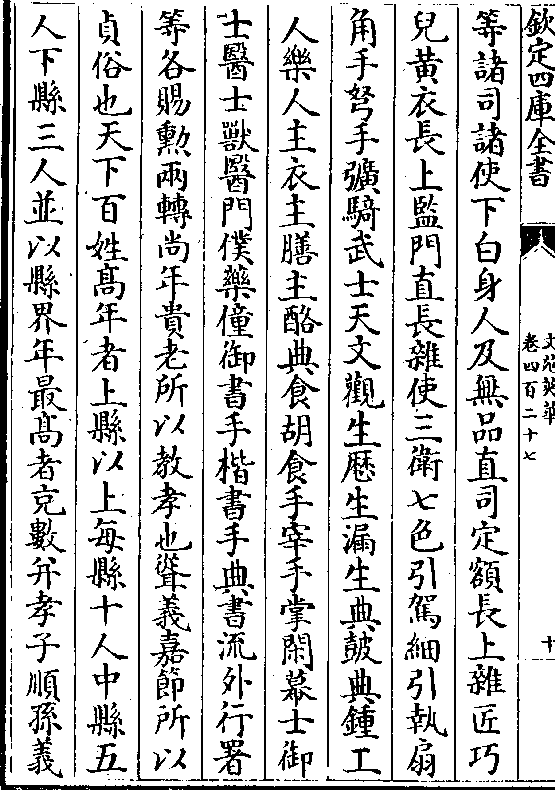 欽定四庫全書
文苑英華
卷四百二十七
十
等諸司諸使下白身人及無品直司定額長上雜匠巧
兒黃衣長上監門直長雜使三衛七色引駕細引執扇
角手弩手彍騎武士天文觀生歴生漏生典皷典鍾工
人樂人主衣主膳主酪典食胡食手宰手掌閑幕士御
士醫士獸醫門僕藥僮御書手楷書手典書流外行署
等各賜勲兩轉尚年貴老所以教孝也聳義嘉節所以
貞俗也天下百姓髙年者上縣以上每縣十人中縣五
人下縣三人並以縣界年最髙者充數并孝子順孫義